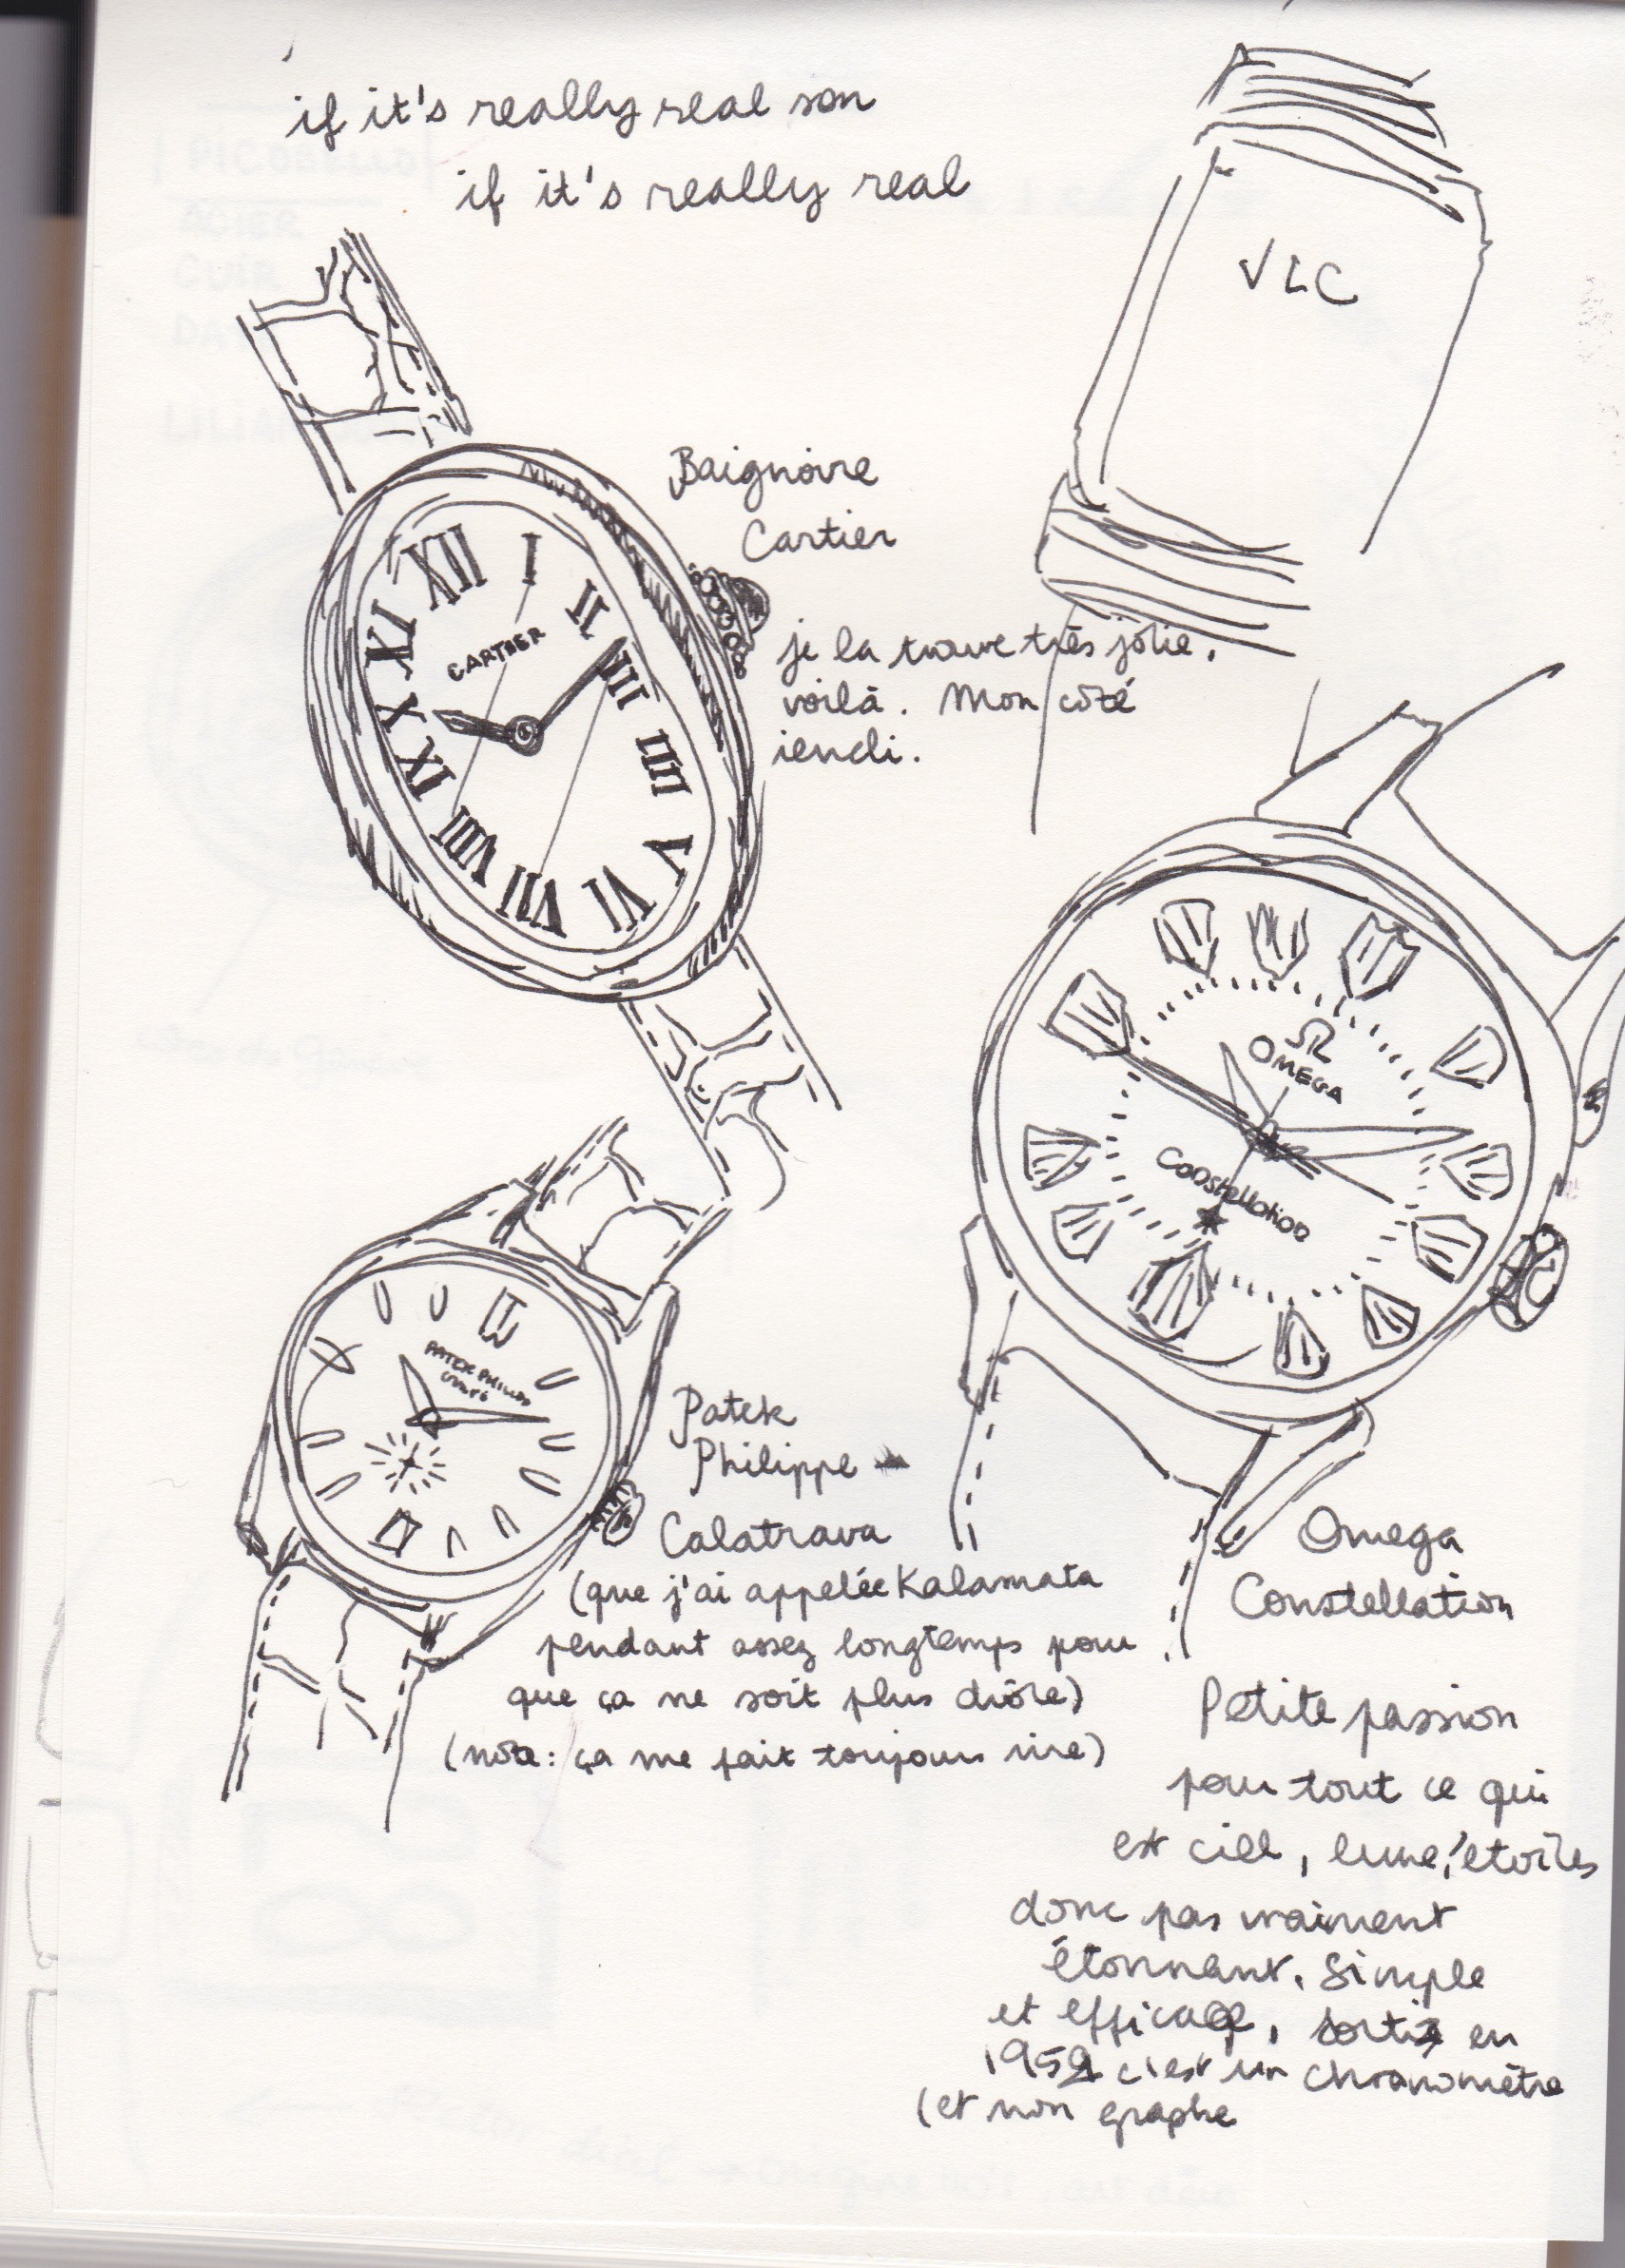 if it's really real son
if it's really real
VLC
Baignoire
Cartier
je la trouve très jolie,
voilà. Mon côté
iencli.
XII
I
II
III
IIII
V
VI
VII
VIII
IX
X
XI
CARTIER
Ω
OMEGA
Constellation
PATEK PHILIPPE
Patek
Philippe
Calatrava
(que j'ai appelée Kalamata
pendant assez longtemps pour
que ça ne soit plus drôle)
(nota: ça me fait toujours rire)
Omega
Constellation
Petite passion
pour tout ce qui
est ciel, lune, étoiles
donc pas vraiment
étonnant. Simple
et efficace, sortie en
1952 c'est un chronomètre
(et non graphe
PICOBELLO
ACIER
CUIR